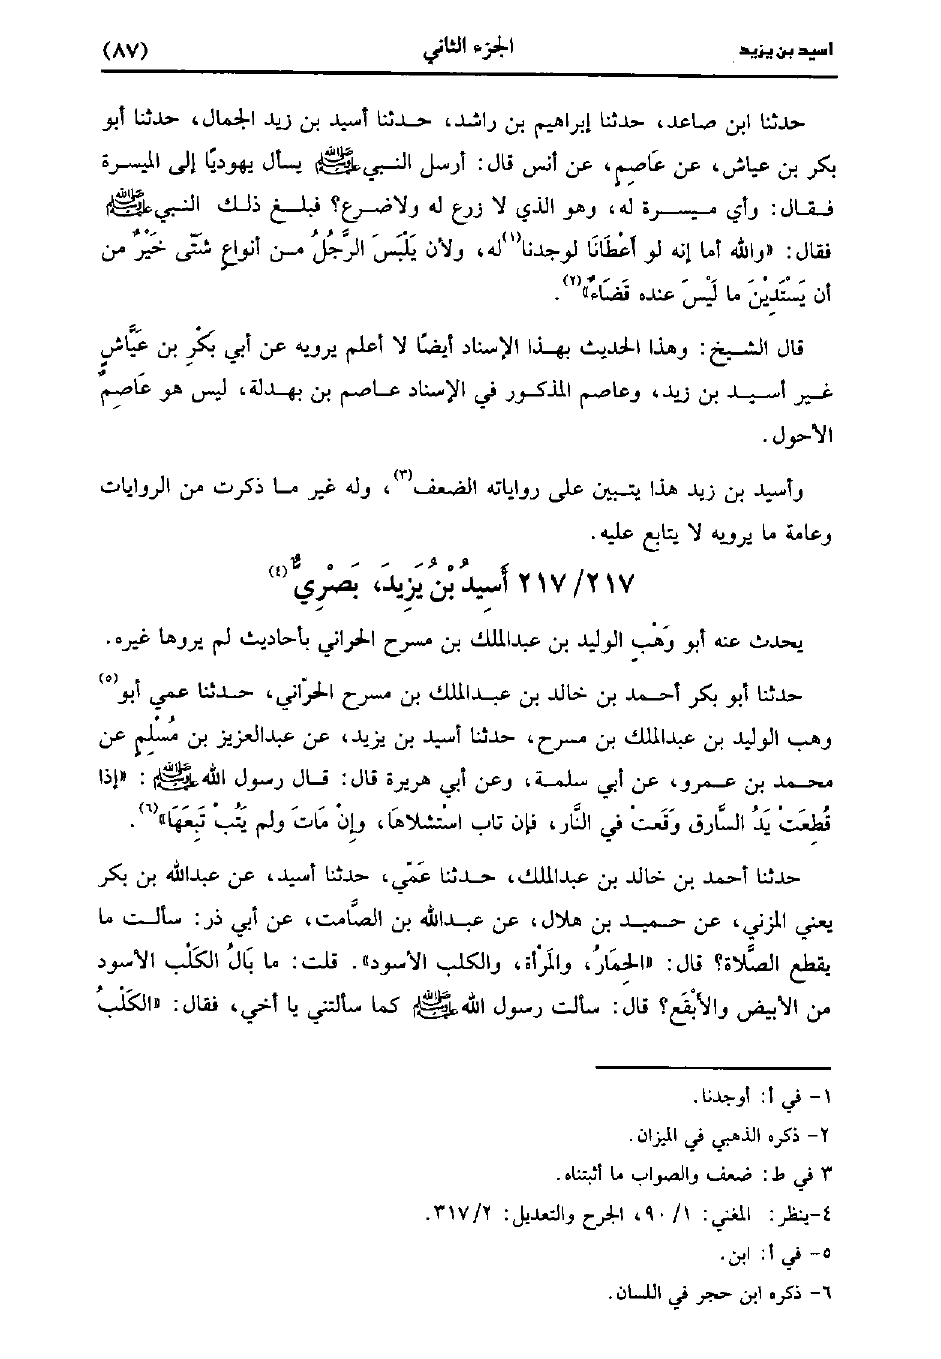 اسيد بن يزيد
الجزء الثاني
(٨٧)
حدثنا ابن صاعد، حدثنا إبراهيم بن راشد، حدثنا أسيد بن زيد الجمال، حدثنا أبو
بكر بن عياش، عن عَاصِمٍ، عن أنس قال: أرسل النبي ﷺ يسأل يهوديًا إلى الميسرة
فقال: وأي ميسرة له، وهو الذي لا زرع له ولاضرع؟ فبلغ ذلك النبي ﷺ
فقال: «والله أما إنه لو أعْطَانَا لوجدنا(١)له، ولأن يَلْبَسَ الرَّجُلُ من أنواعٍ شَتَّى خَيْرٌ من
أن يَسْتَدِيْنَ ما لَيْسَ عنده قَضَاءٌ»(٢).
قال الشيخ: وهذا الحديث بهذا الإسناد أيضًا لا أعلم يرويه عن أبي بَكْرِ بن عَيَّاشٍ
غير أسيد بن زيد، وعاصم المذكور في الإسناد عاصم بن بهدلة، ليس هو عَاصِمٌ
الأحول.
وأسيد بن زيد هذا يتبين على رواياته الضعف(٣)، وله غير ما ذكرت من الروايات
وعامة ما يرويه لا يتابع عليه.
٢١٧/٢١٧ أَسِيدُ بْنُ يَزِيدَ، بَصْرِيٌّ(٤)
يحدث عنه أبو وَهْبٍ الوليد بن عبدالملك بن مسرح الحراني بأحاديث لم يروها غيره.
حدثنا أبو بكر أحمد بن خالد بن عبدالملك بن مسرح الحرّاني، حدثنا عمي أبو(٥)
وهب الوليد بن عبدالملك بن مسرح، حدثنا أسيد بن يزيد، عن عبدالعزيز بن مُسْلِمٍ عن
محمد بن عمرو، عن أبي سلمة، وعن أبي هريرة قال: قال رسول الله ﷺ: «إذا
قُطِعَتْ يَدُ السَّارق وَقَعَتْ في النَّار، فإن تاب استْشلاهَا، وإنْ مَاتَ ولم يَتُبْ تَبِعَهَا»(٦).
حدثنا أحمد بن خالد بن عبدالملك، حدثنا عَمِّي، حدثنا أسيد، عن عبدالله بن بكر
يعني المزني، عن حميد بن هلال، عن عبدالله بن الصَّامت، عن أبي ذر: سألت ما
يقطع الصَّلاة؟ قال: «الحِمَارُ، والمرْأة، والكلب الأسود». قلت: ما بَالُ الكَلْب الأسود
من الأبيض والأبْقَع؟ قال: سألت رسول الله ﷺ كما سألتني يا أخي، فقال: «الكَلْبُ
١- في أ: أوجدنا.
٢- ذكره الذهبي في الميزان.
٣ في ط: ضعف والصواب ما أثبتناه.
٤-ينظر: المغني: ١/ ٩٠، الجرح والتعديل: ٣١٧/٢.
٥- في أ: ابن.
٦- ذكره ابن حجر في اللسان.